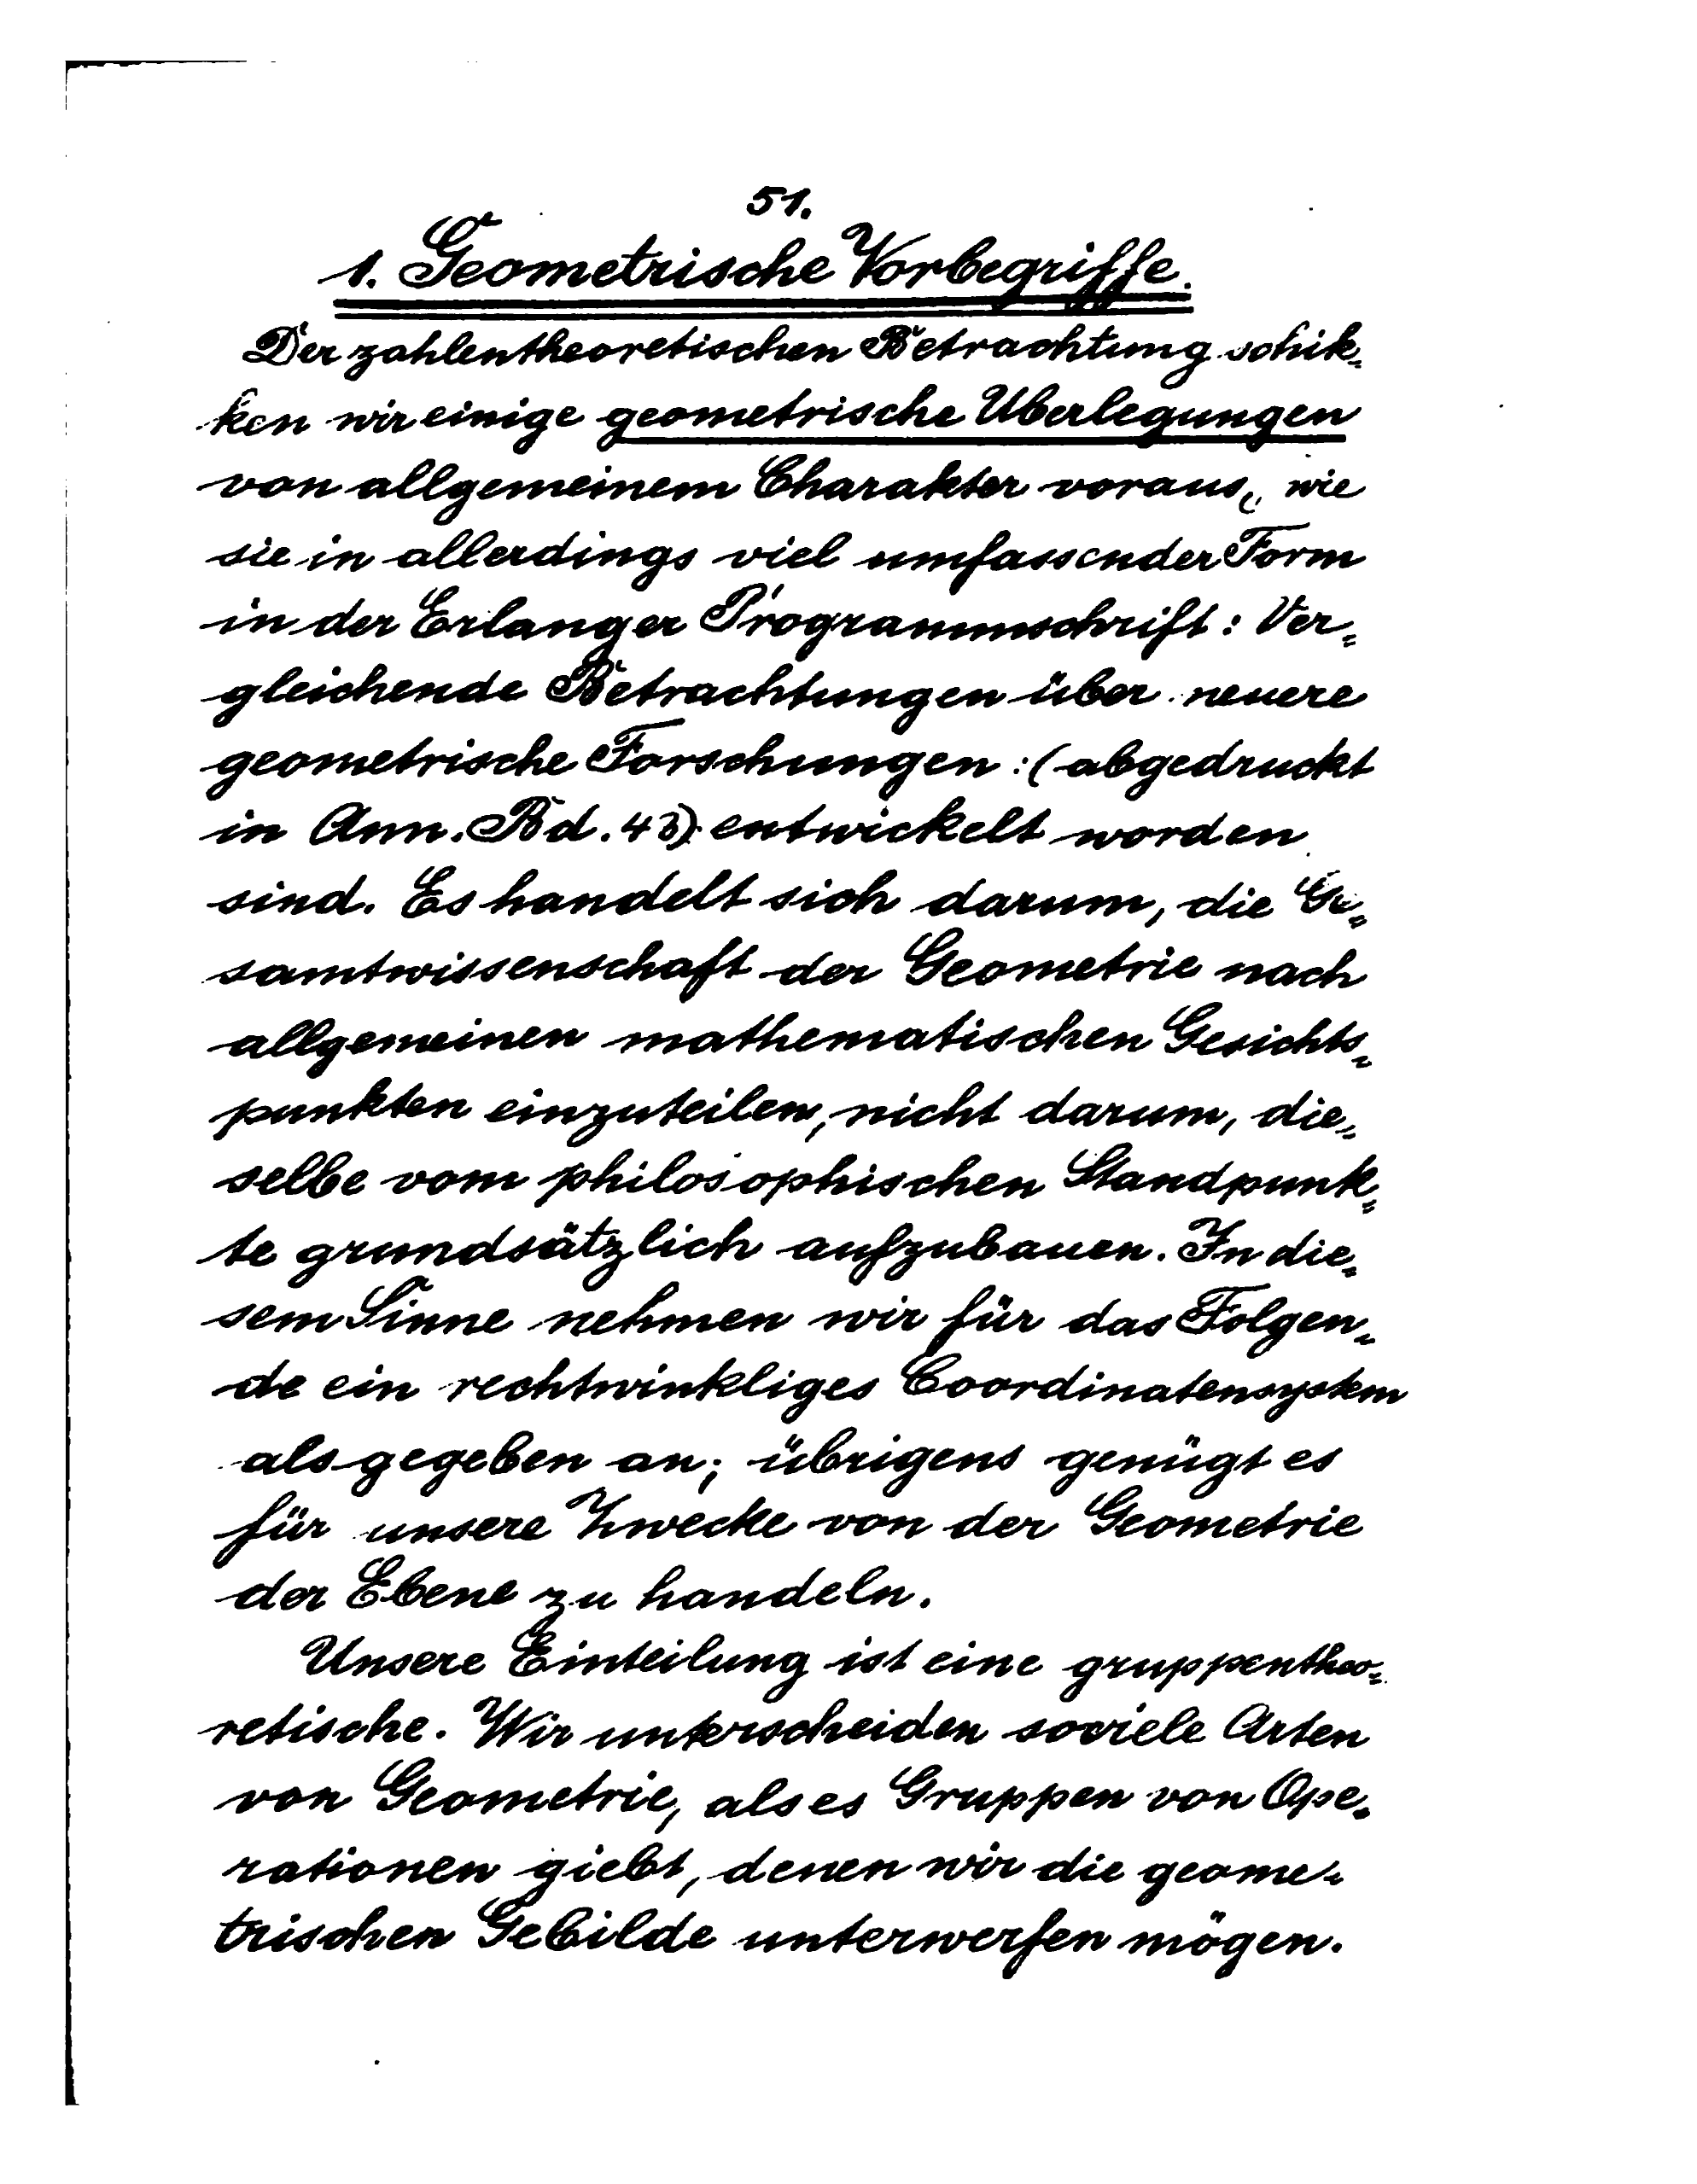 51.
1. Geometrische Vorbegriffe.
Der zahlentheoretischen Betrachtung schik-
ken wir einige geometrische Überlegungen
von allgemeinem Charakter voraus, wie
sie in allerdings viel umfassender Form
in der Erlanger Programmschrift: Ver-
gleichende Betrachtungen über neuere
geometrische Forschungen: (abgedruckt
in Ann. Bd. 43) entwickelt worden
sind. Es handelt sich darum, die Ge-
samtwissenschaft der Geometrie nach
allgemeinen mathematischen Gesichts-
punkten einzuteilen, nicht darum, die-
selbe vom philosophischen Standpunk-
te grundsätzlich aufzubauen. In die-
sem Sinne nehmen wir für das Folgen-
de ein rechtwinkliges Coordinatensystem
als gegeben an; übrigens genügt es
für unsere Zwecke von der Geometrie
der Ebene zu handeln.
Unsere Einteilung ist eine gruppentheo-
retische. Wir unterscheiden soviele Arten
von Geometrie, als es Gruppen von Ope-
rationen giebt, denen wir die geome-
trischen Gebilde unterwerfen mögen.